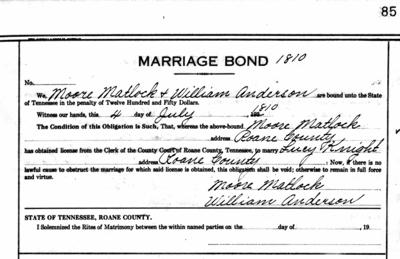 85
MARRIAGE BOND 1810
No.
We, Moore Matlock & William Anderson are bound unto the State
of Tennessee in the penalty of Twelve Hundred and Fifty Dollars.
Witness our hands, this 4 day of July 1810
The Condition of this Obligation is Such, That, whereas the above-bound Moore Matlock
address Roane County
has obtained license from the Clerk of the County Court of Roane County, Tennessee, to marry Lucy Knight
address Roane County ; Now, if there is no
lawful cause to obstruct the marriage for which said license is obtained, this obligation shall be void; otherwise to remain in full force
and virtue.
Moore Matlock
William Anderson
STATE OF TENNESSEE, ROANE COUNTY.
I Solemnized the Rites of Matrimony between the within named parties on the day of , 19